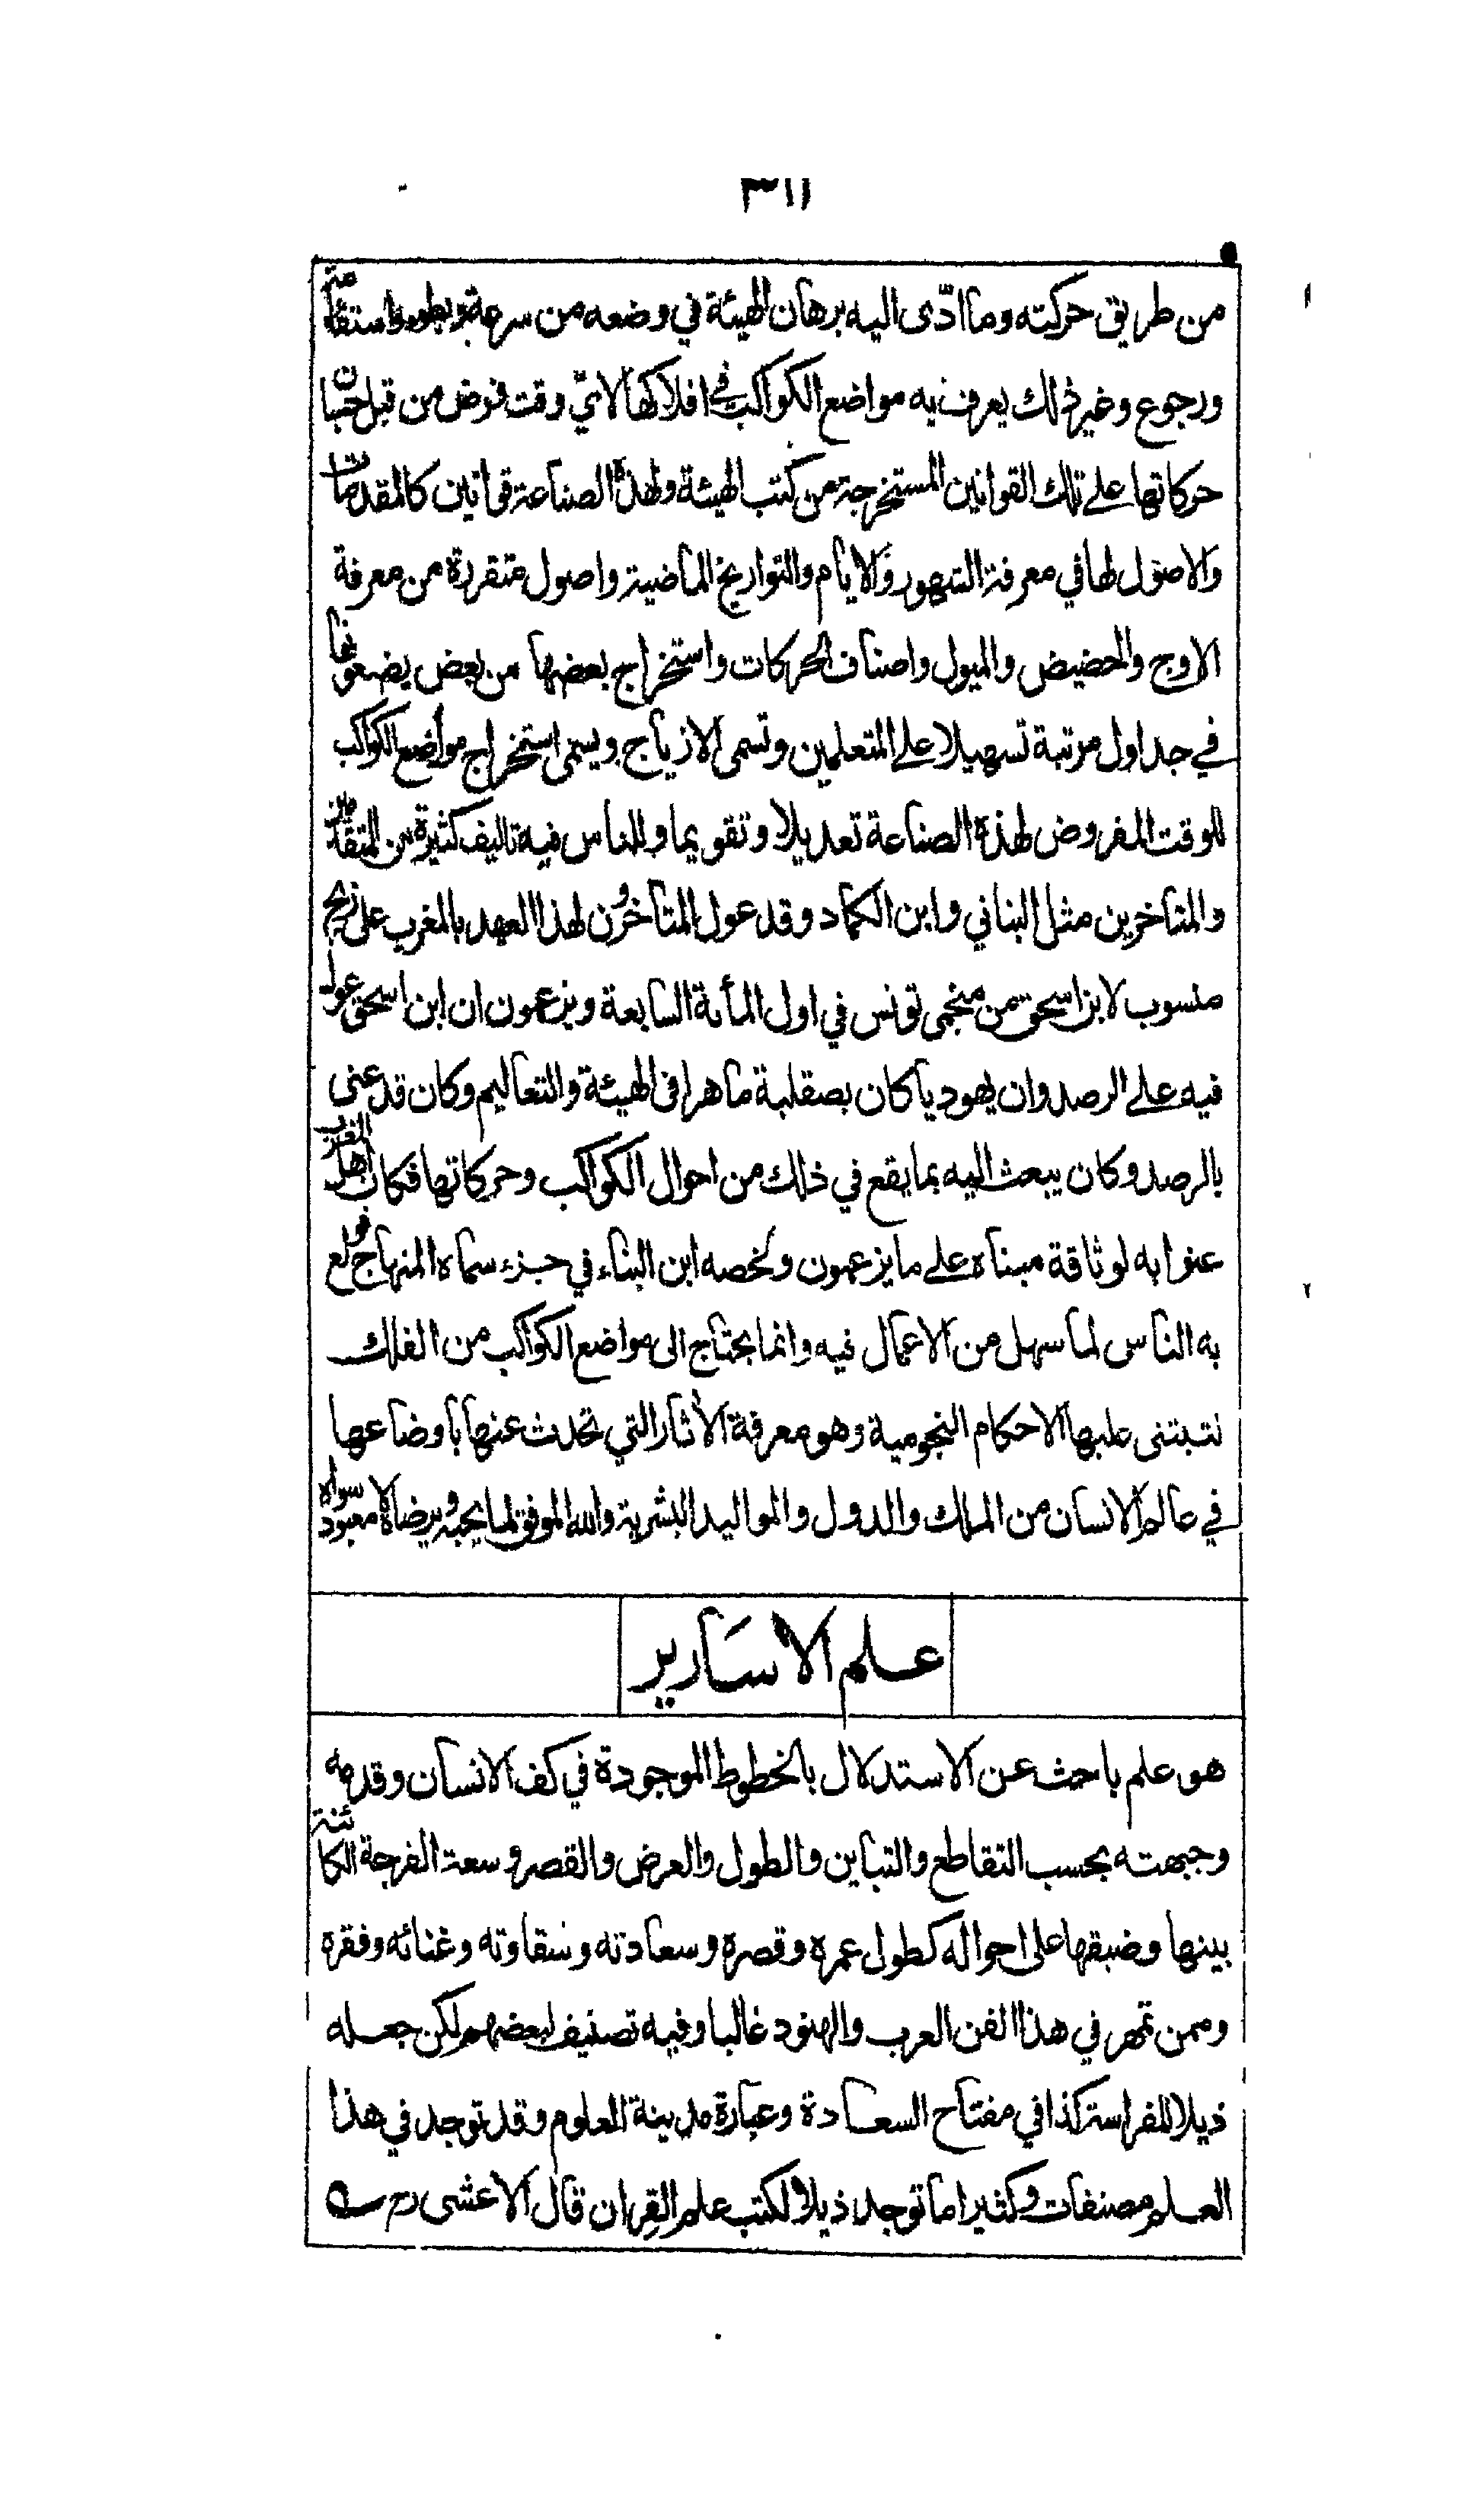 ٣١١
من طريق حركته وما ادّى اليه برهان الهيئة في وضعه من سرعة وبطوء واستقامة
ورجوع وغير ذلك يعرف به مواضع الكواكب في افلاكها لايّ وقت فرض من قبل حسبان
حركاتها على تلك القوانين المستخرجة من كتب الهيئة ولهذه الصناعة قوانين كالمقدمات
والاصول لها في معرفة الشهور والايام والتواريخ الماضية واصول متقررة من معرفة
الاوج والحضيض والميول واصناف الحركات واستخراج بعضها من بعض يضعونها
في جداول مرتبة تسهيلا على المتعلمين وتسمى الازياج ويسمى استخراج مواضع الكواكب
للوقت المفروض لهذه الصناعة تعديلا وتقويما وللناس فيه تاليف كثيرة من المتقدمين
والمتاخرين مثل البتاني وابن الكماد وقد عول المتأخرون لهذا العهد بالمغرب على زيج
منسوب لابن اسحق من منجمى تونس في اول المأئة السابعة ويزعمون ان ابن اسحق عول
فيه على الرصد وان يهوديا كان بصقلية ماهرا فى الهيئة والتعاليم وكان قد عنى
بالرصد وكان يبعث اليه بما يقع في ذلك من احوال الكواكب وحركاتها فكان اهل المغرب
عنوا به لوثاقة مبناه على ما يزعمون ولخصه ابن البناء في جزء سماه المنهاج فولع
به الناس لما سهل من الاعمال فيه وانما يحتاج الى مواضع الكواكب من الفلك
لتبتنى عليها الاحكام النجومية وهو معرفة الأثار التي تحدث عنها بأوضاعها
في عالم الانسان من الملك والدول والمواليد البشرية والله الموفق لما يحبه ويرضاه لا معبود سواه
علم الاسارير
هو علم باحث عن الاستدلال بالخطوط الموجودة في كف الانسان وقدمه
وجبهته بحسب التقاطع والتباين والطول والعرض والقصر وسعة الفرجة الكائنة
بينها وضيقها على احواله كطول عمره وقصره وسعادته وشقاوته وغنائه وفقره
وممن تمهر في هذا الفن العرب والهنود غالبا وفيه تصنيف لبعضهم لكن جعله
ذيلا للفراسة كذا في مفتاح السعادة وعبارة مدينة العلوم وقد توجد في هذا
العلم مصنفات وكثيرا ما توجد ذيلا لكتب علم القران قال الاعشى رح